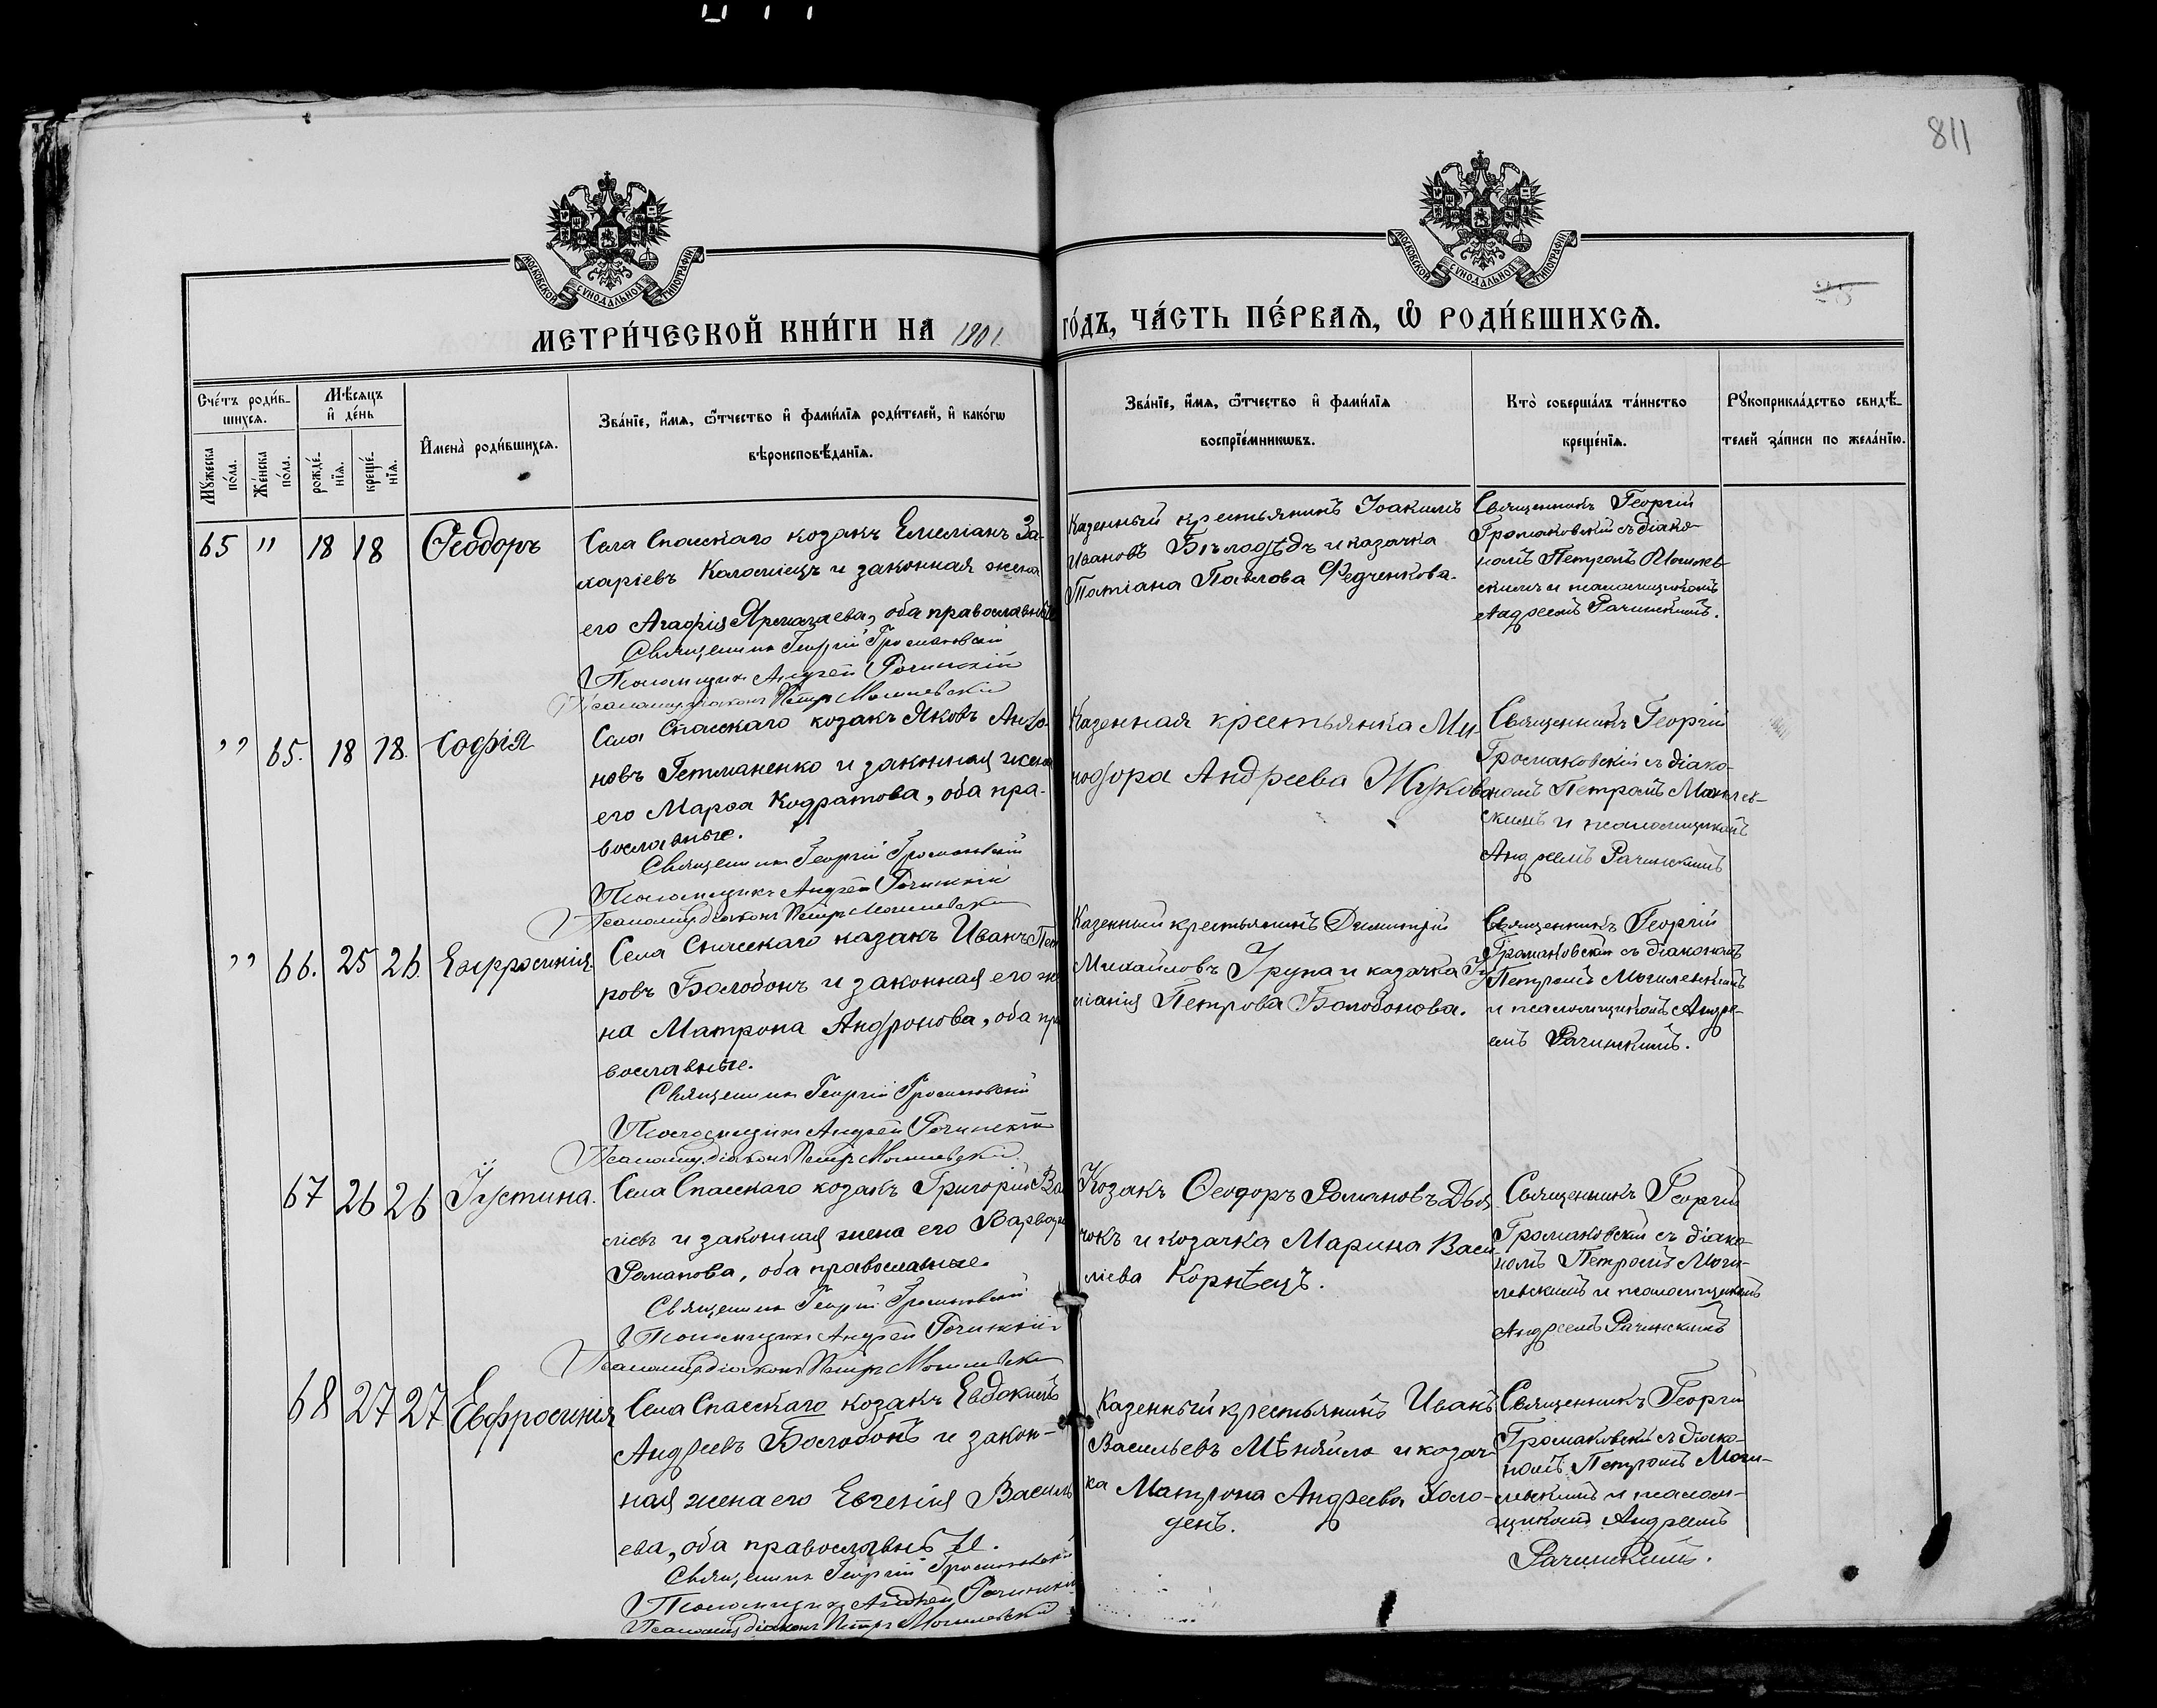 811
МОСКОВСКОЙ СѴНОДАЛЬНОЙ ТИПОГРАФІИ
МОСКОВСКОЙ СѴНОДАЛЬНОЙ ТИПОГРАФІИ
МЕТРИ́ЧЕСКОЙ КНИ́ГИ НА 1901
ГО́ДЪ, ЧА́СТЬ ПЕ́РВАѦ, Ѽ РОДИ́ВШИХСѦ.
Сче́тъ роди́в-
шихсѧ.
Мꙋжеска по́ла.
Же́нска по́ла.
Мѣ́сѧцъ
и҆ де́нь
рожде́-
нїѧ.
креще́-
нїѧ.
И҆мена̀ роди́вшихсѧ.
Зва́нїе, и҆́мѧ, ѻ҆́тчество и҆ фами́лїѧ роди́телей, и҆ како́гѡ
вѣроисповѣ́данїѧ.
Зва́нїе, и҆́мѧ, ѻ҆́тчество и҆ фами́лїѧ
воспрїе́мникѡвъ.
Кто̀ соверша́лъ та́инство
креще́нїѧ.
Рꙋкоприкла́дство свидѣ́-
телей за́писи по жела́нїю.
65 " 18 18 Ѳеодоръ
Села Спасскаго козакъ Емеліанъ За-
харіевъ Коломіецъ и законная жена
его Агафія Ярмазаева, оба православные
Священникъ Георгій Громаковскій
Псаломщикъ Андрей Рачинскій
Псаломщ. діаконъ Петръ Могилевскій
Казенный крестьянинъ Іоакимъ
Ивановъ Бѣлодѣдъ и казачка
Татіана Павлова Федченкова.
Священникъ Георгій
Громаковскій съ діако-
номъ Петромъ Могилев-
скимъ и псаломщикомъ
Андреемъ Рачинскимъ.
" 65. 18 18. Софія
Села Спасскаго козакъ Яковъ Андро-
новъ Гетманенко и законная жена
его Марѳа Кодратова, оба пра-
вославные.
Священникъ Георгій Громаковскій
Псаломщикъ Андрей Рачинскій
Псаломщ. діаконъ Петръ Могилевскій
Казенная крестьянка Ми-
нодора Андреева Жукова
Священникъ Георгій
Громаковскій съ діако-
номъ Петромъ Могилев-
скимъ и псаломщикомъ
Андреемъ Рачинскимъ
" 66. 25 26. Евфросинія.
Села Спасскаго казакъ Иванъ Пет
ровъ Болобонъ и законная его же
на Матрона Андронова, оба пра
вославные.
Священникъ Георгій Громаковскій
Псаломщикъ Андрей Рачинскій
Псаломщ. діаконъ Петръ Могилевскій
Казенный крестьянинъ Димитрій
Михайловъ и казачка
Петрова Болобонова.
Священникъ Георгій
Громаковскій съ діакономъ
Петромъ Могилевскимъ
и псаломщикомъ Андре-
емъ Рачинскимъ.
67 26 26 Іустина.
Села Спасскаго козакъ Григорій Ва
сіевъ и законная жена его Варвара
Романова, оба православные.
Священникъ Георгій Громаковскій
Псаломщикъ Андрей Рачинскій
Псаломщ. діаконъ Петръ Могилевскій
Козакъ Ѳеодоръ Романовъ Дья
чокъ и козачка Марина Васи-
ліева Корнѣецъ.
Священникъ Георгій
Громаковскій съ діако-
номъ Петромъ Моги-
левскимъ и псаломщикомъ
Андреемъ Рачинскимъ
68 27 27 Евфросинія
Села Спасскаго козакъ Евдокимъ
Андреевъ Болобонъ и закон-
ная жена его Евгенія Василь
ева, оба православные.
Священникъ Георгій Громаковскій
Псаломщикъ Андрей Рачинскій
Псаломщ. діаконъ Петръ Могилевскій
Казенный крестьянинъ Иванъ
Васильевъ Мѣняйло и козач-
ка Матрона Андреева Холо-
денъ.
Священникъ Георгій
Громаковскій съ діако-
номъ Петромъ Моги-
левскимъ и псалом-
щикомъ Андреемъ
Рачинскимъ.